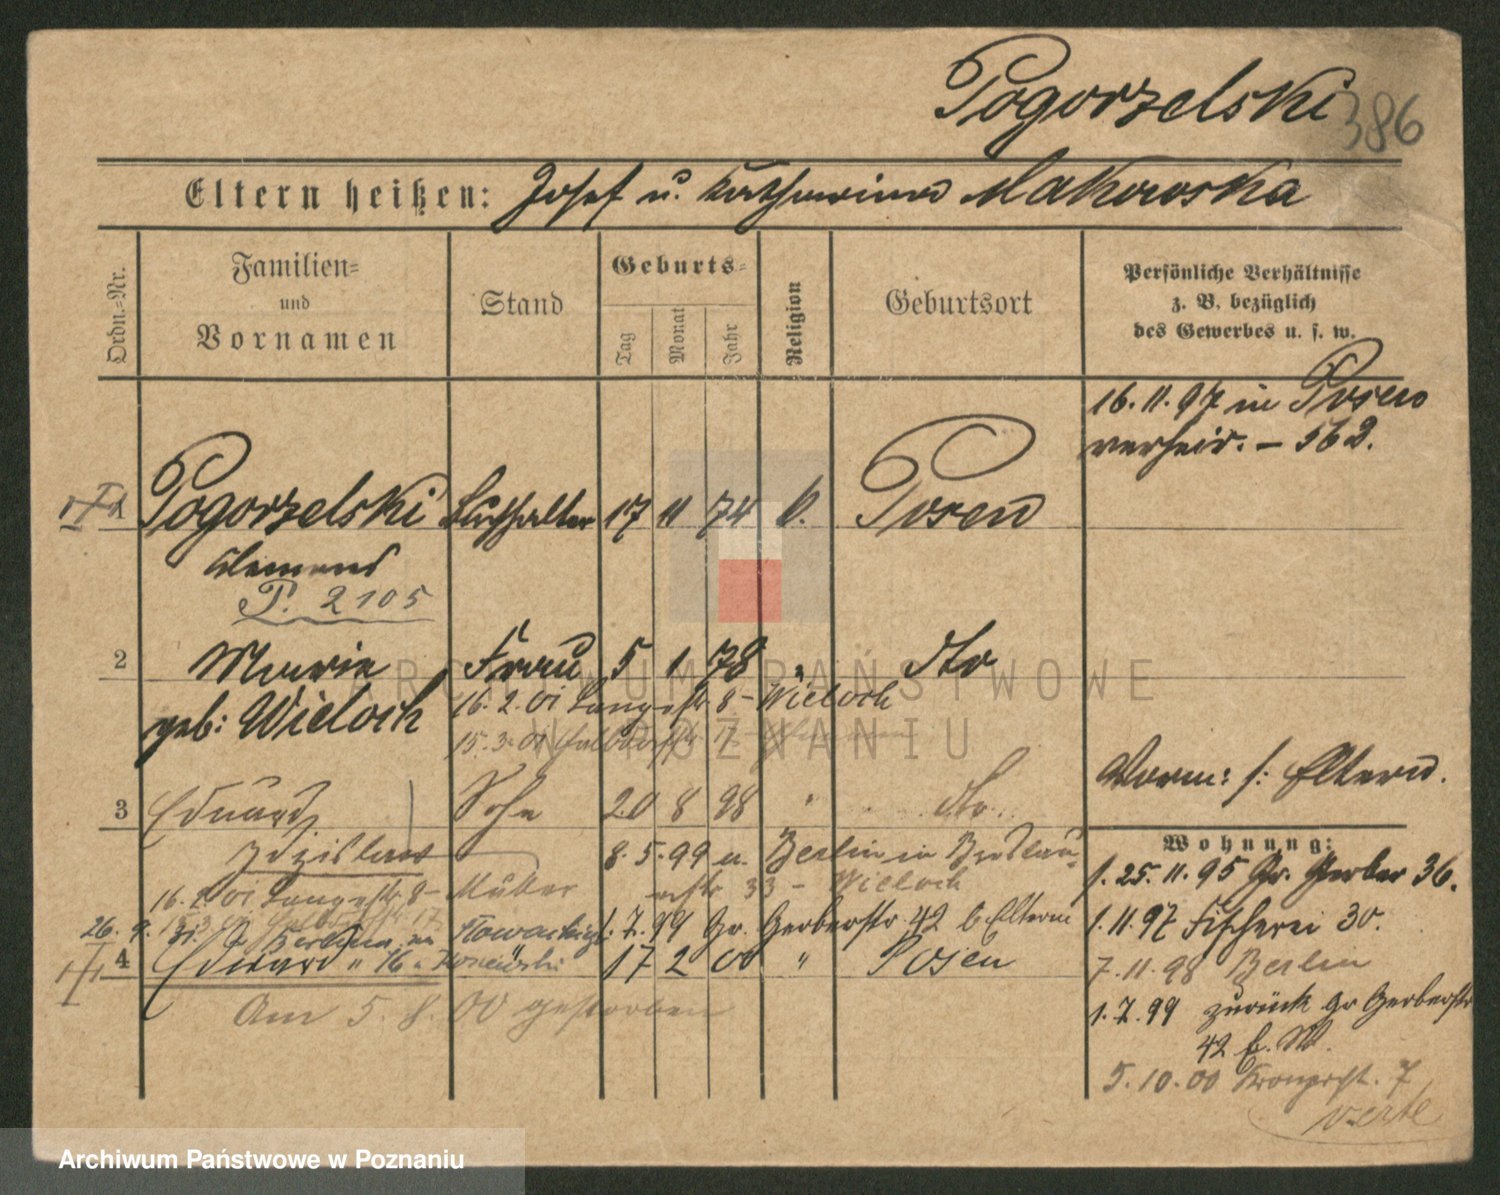 Pogorzelski 386
Eltern heißen: Josef u. Katharina Makowska
Ordn.=Nr.
Familien=
und
Vornamen
Stand
Geburts=
Tag
Monat
Jahr
Religion
Geburtsort
Persönliche Verhältnisse
z. B. bezüglich
des Gewerbes u. s. w.
16. 11. 97 in Posen
verheir. –
1 Pogorzelski Buchhalter 17 11 74 k. Posen
Clemens
P. 2105
2 Marie Frau 5 1 78 " dto
geb: Wieloch
16. 2. 01 Langestr 8 – Wieloch
15. 3. 01 Halbdorfstr 17
Vorm: s: Eltern.
3 Eduard Sohn 20 8 98 " dto.
Zdzislaus
8. 5. 99 u. Berlin in Breslau=
erstr 33 – Wieloch
16. 2. 01 Langestr 8 – Mutter
1. 7. 99 Gr. Gerberstr. 42 b. Eltern
4 Eduard " 17 2 00 " Posen
Am 5. 8. 00 gestorben
Wohnung:
1. 25. 11. 95 Gr. Gerber 36.
1. 11. 97 Fischerei 30.
7. 11. 98 Berlin
1. 7. 99 zurück Gr Gerberstr
42 b. W.
5. 10. 00 Kronprst. 7
verte
ARCHIWUM PAŃSTWOWE
W POZNANIU
Archiwum Państwowe w Poznaniu